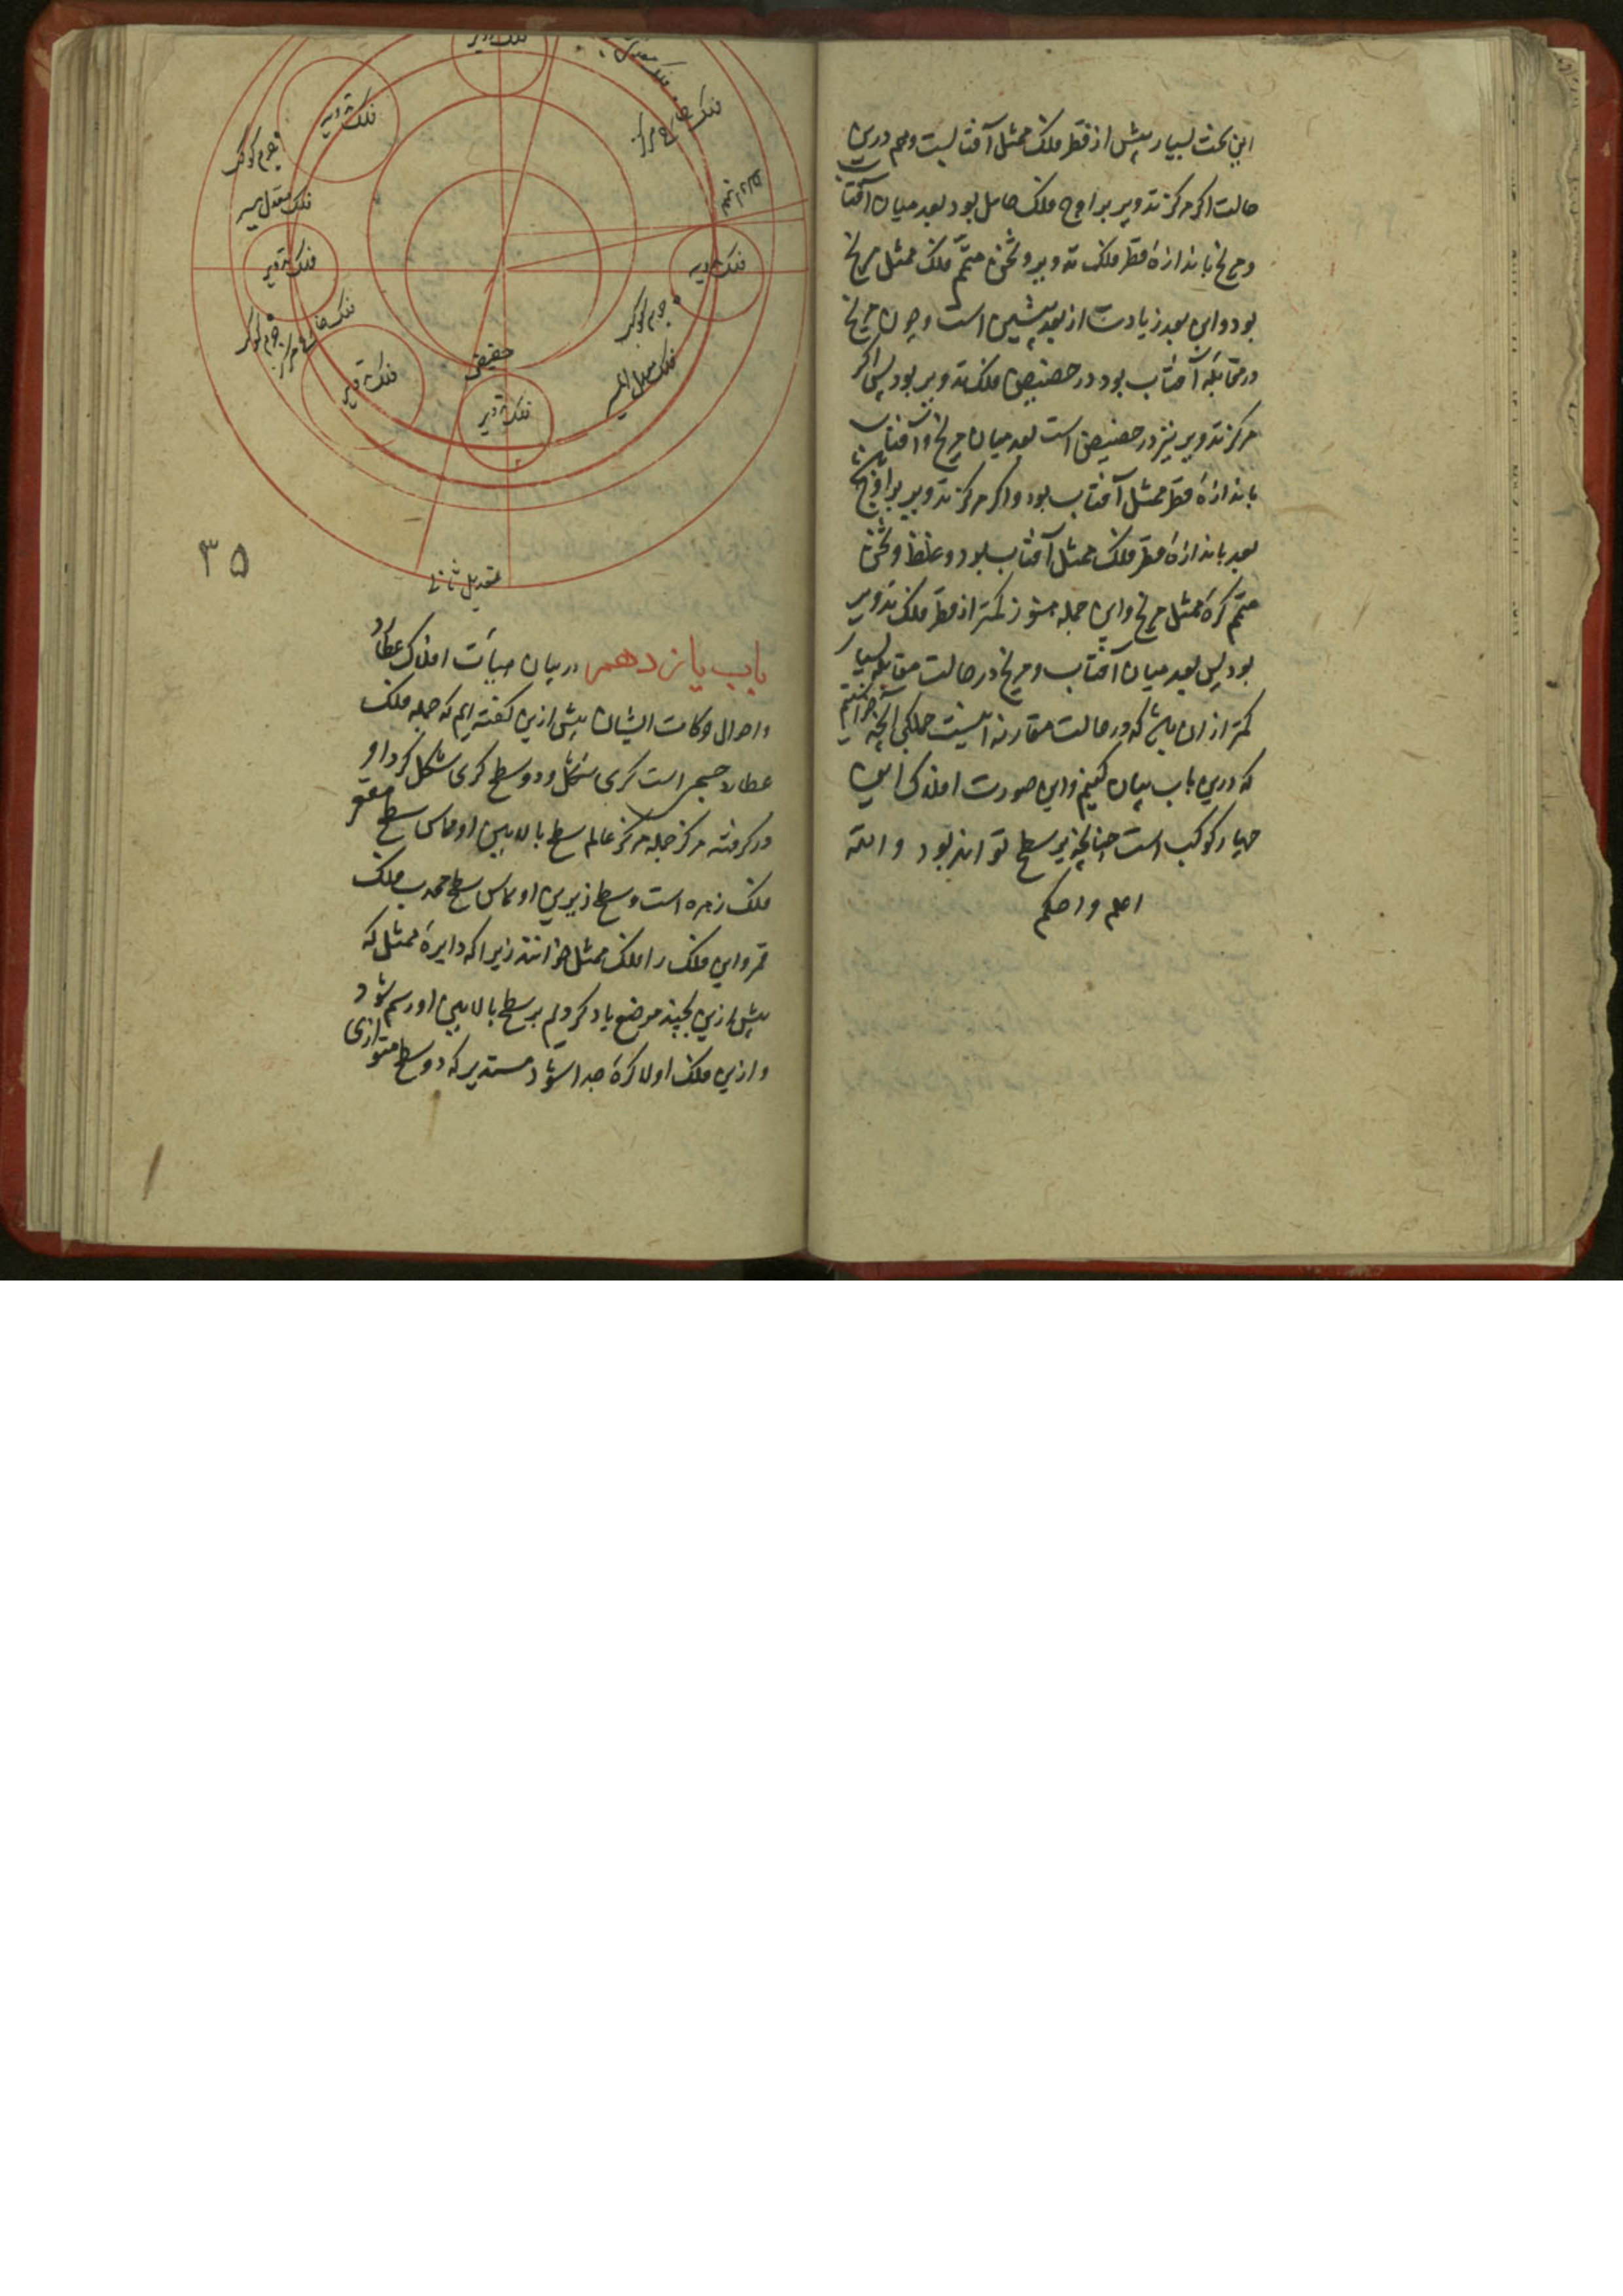 این ثخن بسیار بیش از قطر فلک ممثل آفتابست و هم درین
حالت اگر مرکز تدویر بر اوج فلک حامل بود بعد میان آفتاب
و مریخ باندازهٔ قطر فلک تدویر و ثخن متمم فلک ممثل مریخ
بود و این بعد زیادت از بعد پیشین است و چون مریخ
در مقابلهٔ آفتاب بود در حضیض فلک تدویر بود پس اگر
مرکز تدویر نیز در حضیض است بعد میان مریخ و آفتاب
باندازهٔ قطر ممثل آفتاب بود و اگر مرکز تدویر بر اوج
بعد باندازهٔ قطر فلک ممثل آفتاب بود و غلظ و ثخن
متمم کرهٔ ممثل مریخ و این جمله هنوز کمتر از قطر فلک تدویر
بود پس بعد میان آفتاب و مریخ در حالت مقابله بسیار
کمتر از ان باشد که در حالت مقارنه اینست جملکی آنچه خواستیم
که درین باب بیان کنیم و این صورت افلاک این
چهار کوکب است چنانچه بر سطح تواند بود والله
اعلم و احکم
فلک تدویر
فلک خارج مرکز
فلک تدویر
جرم کوکب
فلک معدل مسیر
فلک تدویر
فلک تدویر
جرم کوکب
فلک خارج مرکز
جرم کوکب
فلک تدویر
حقیقی
فلک تدویر
فلک معدل المسیر
تعدیل ثانی
۳۵
باب یازدهم در بیان هیأت افلاک عطارد
و احوال حرکات ایشان پیش ازین گفته ایم که جمله فلک
عطارد جسمی است کری شکل و دو سطح کری شکل گرد او
در گرفته مرکز جمله مرکز عالم سطح بالایین او مماس سطح مقعر
فلک زهره است و سطح زیرین او مماس سطح محدب فلک
قمر و این فلک را فلک ممثل خوانند زیرا که دایرهٔ ممثل که
پیش ازین بچند موضع یاد کردیم بر سطح بالایین او رسم شود
و ازین فلک اولا کرهٔ جدا شود مستدیر که دو سطح متوازی